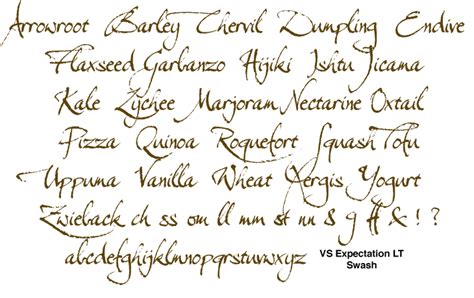 Arrowroot Barley Chervil Dumpling Endive
Flaxseed Garbanzo Hijiki Ishtu Jicama
Kale Lychee Marjoram Nectarine Oxtail
Pizza Quinoa Roquefort Squash Tofu
Uppuma Vanilla Wheat Xergis Yogurt
Zwieback ch ss om ll mm st nn & g ff & ! ?
abcdefghijklmnopqrstuvwxyz VS Expectation LT
Swash